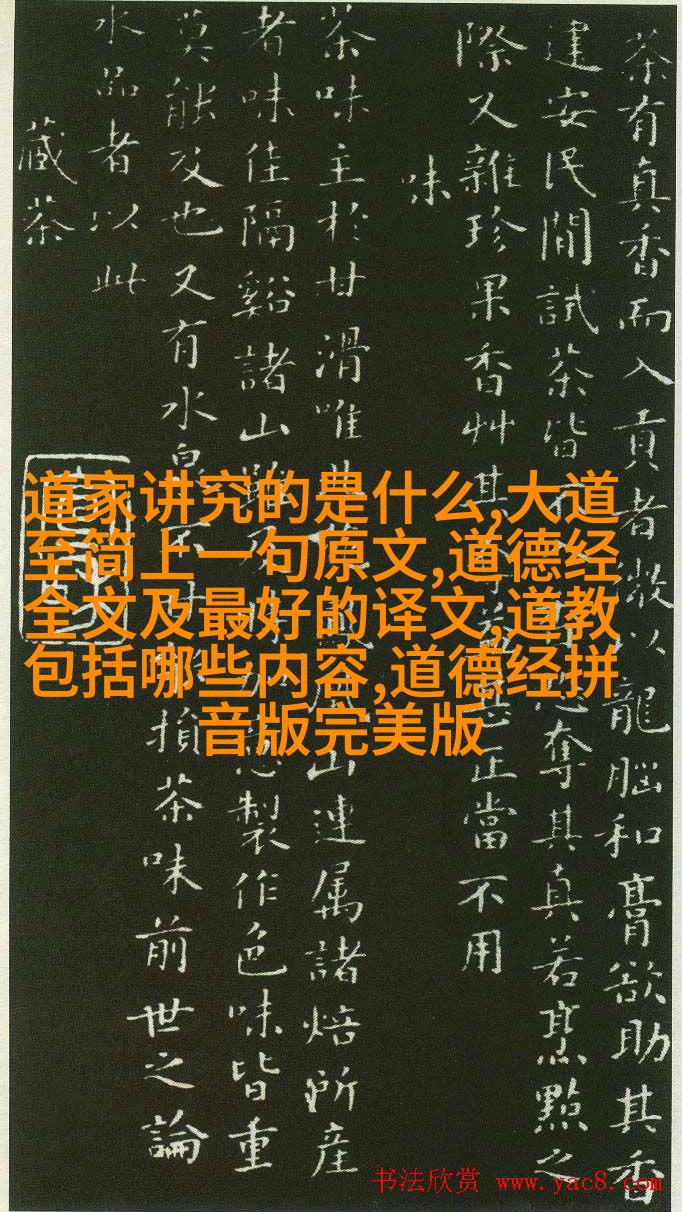 茶有真香而入貢者微以龍腦和膏欲助其香
建安民間試茶皆奪其真若烹點之
際又雜珍果香艸其正當不用
味
茶味主於甘滑唯山連属諸焙所産
者味佳隔谿諸山雖製作色味皆重
莫能及也又有水泉損茶味前世之論
水品者以此
藏茶
道家讲究的是什么,大道
至简上一句原文,道德经
全文及最好的译文,道教
包括哪些内容,道德经拼
音版完美版
书法欣赏 www.yac8.com